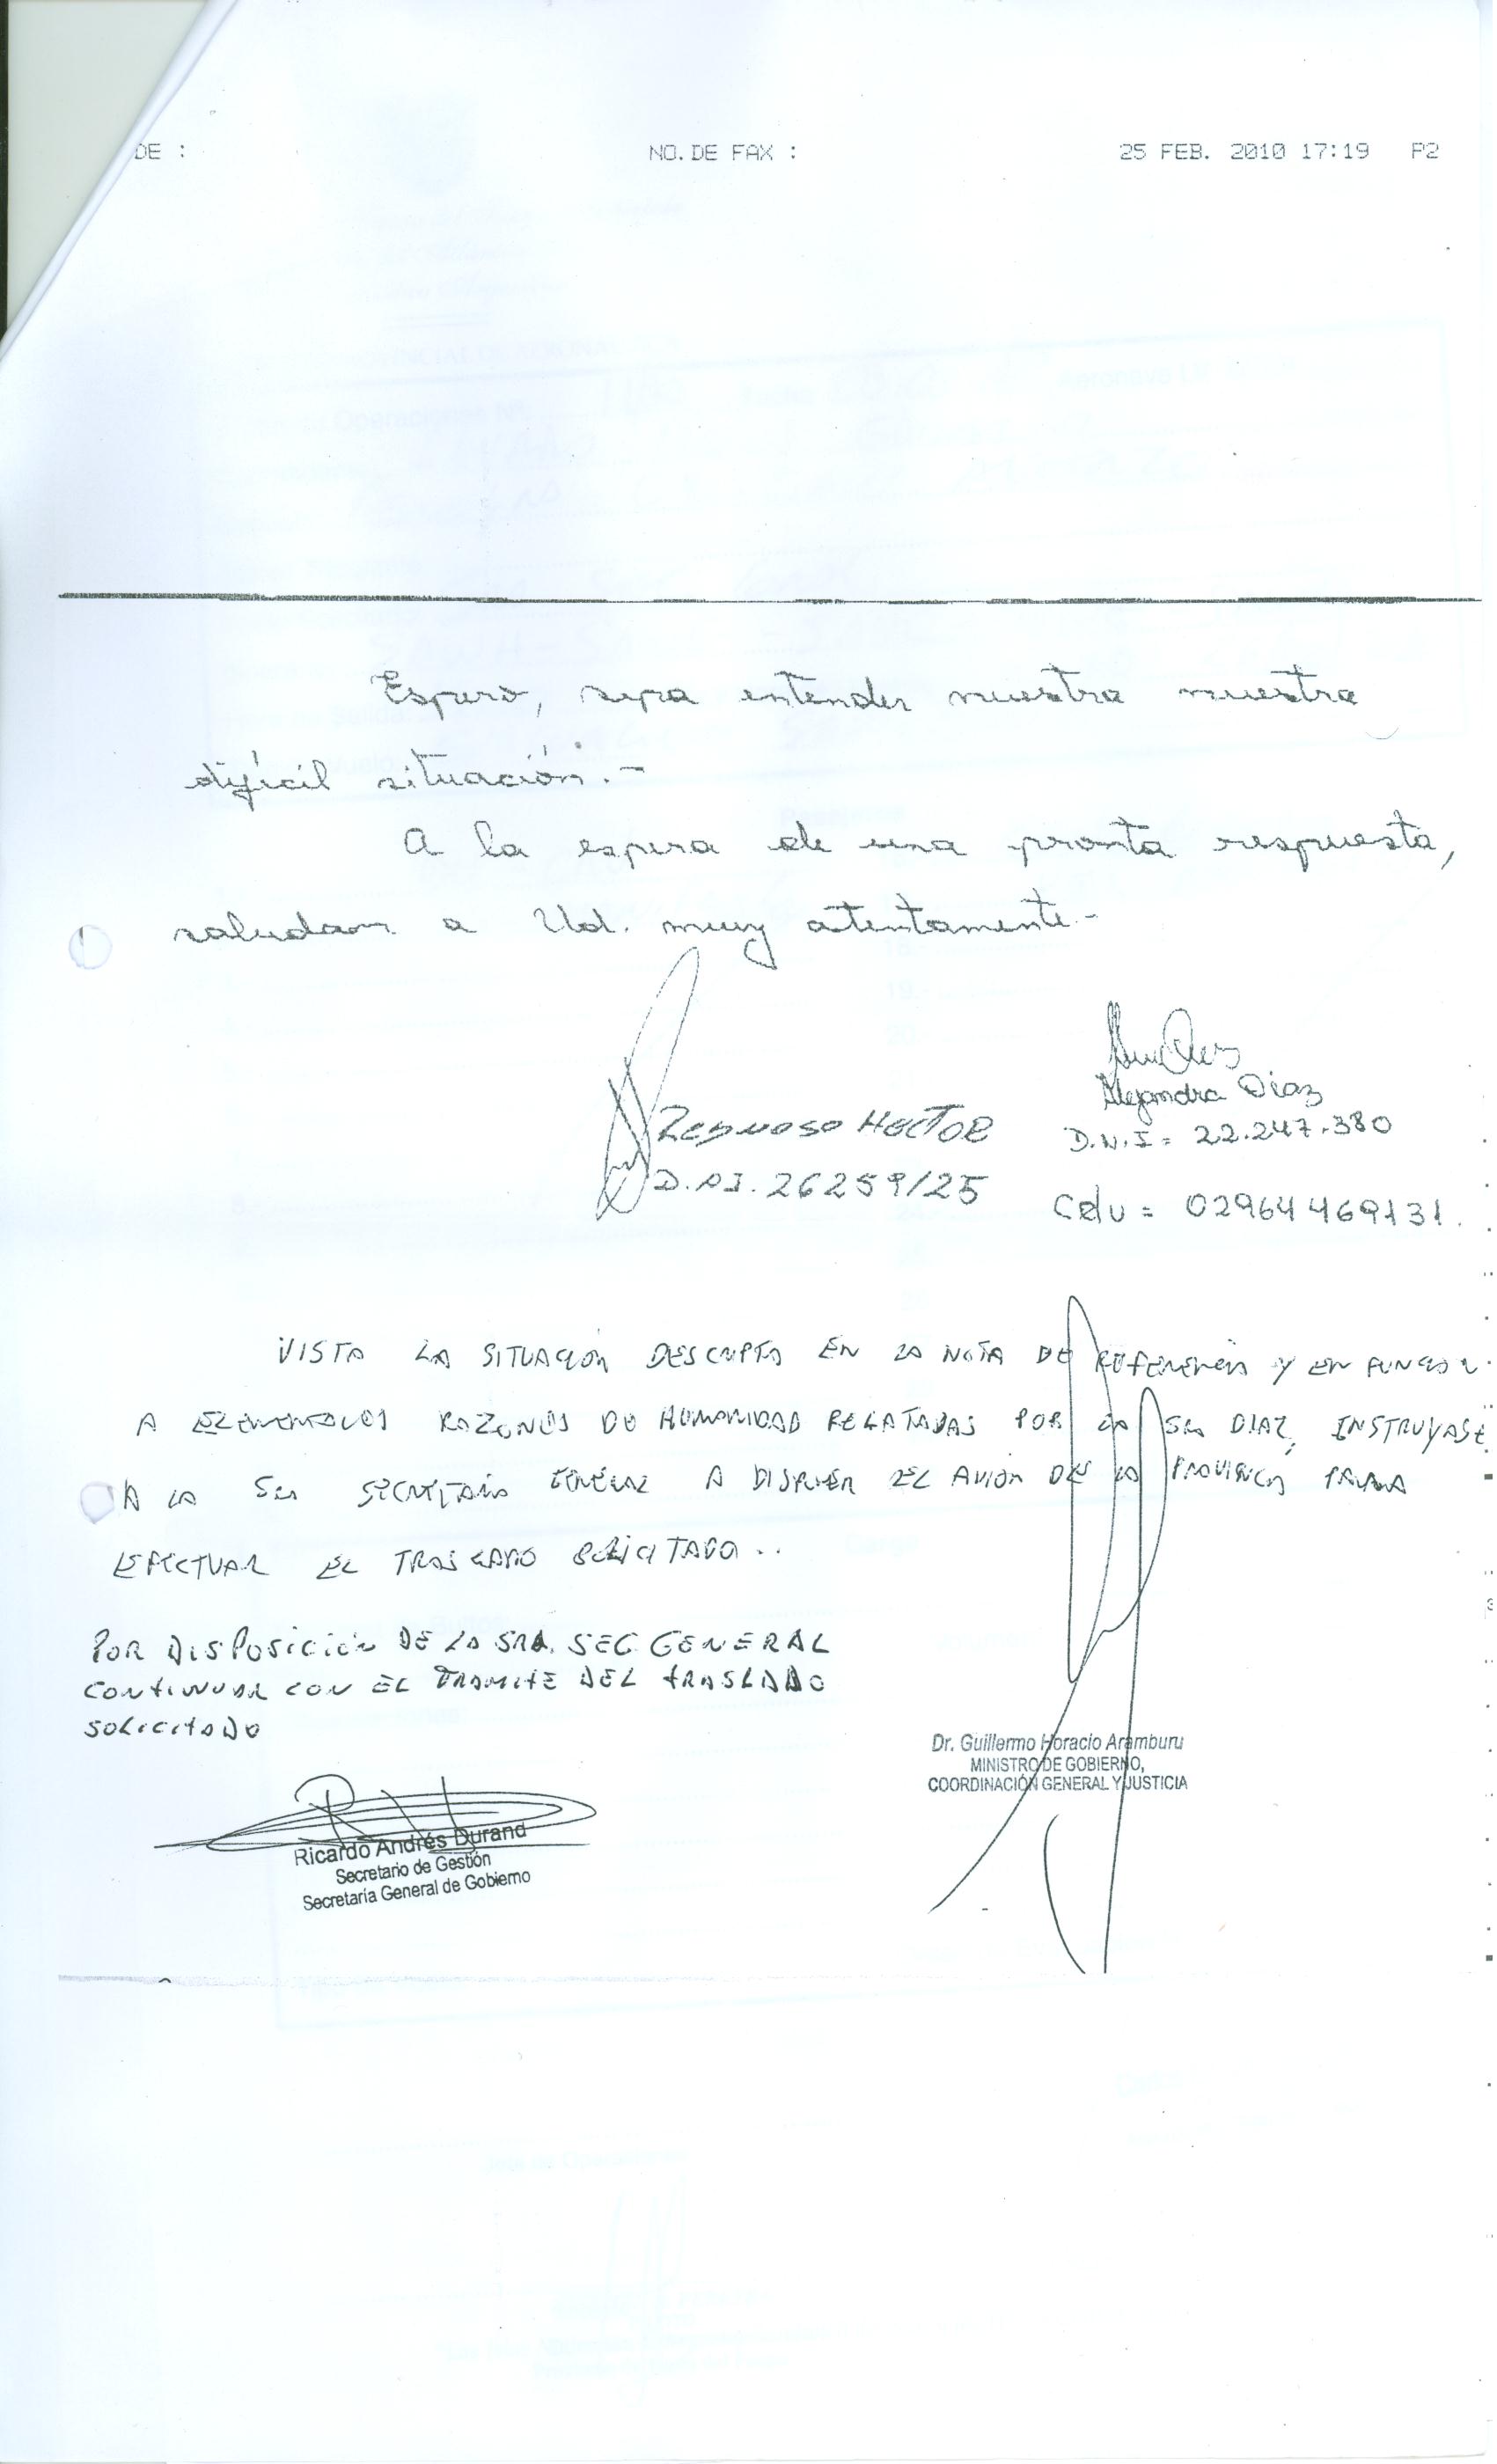 DE :
NO. DE FAX :
25 FEB. 2010 17:19 P2
Espero, sepa entender nuestra nuestra
difícil situación.-
A la espera de una pronta respuesta,
saludam a Ud. muy atentamente.-
Alejandra Diaz
D.N.I = 22.247.380
Reynoso Hector
D.N.I. 26259125
Celu = 02964469131.
VISTA LA SITUACIÓN DESCRIPTA EN LA NOTA DE REFERENCIA Y EN FUNCION
A ELEMENTALES RAZONES DE HUMANIDAD RELATADAS POR LA SRA DIAZ, INSTRUYASE
A LA SRA SECRETARIA GENERAL A DISPONER EL AVION DE LA PROVINCIA PARA
EFECTUAR EL TRASLADO SOLICITADO..
POR DISPOSICIÓN DE LA SRA. SEC GENERAL
CONTINUAR CON EL TRAMITE DEL TRASLADO
SOLICITADO
Dr. Guillermo Horacio Aramburu
MINISTRO DE GOBIERNO,
COORDINACIÓN GENERAL Y JUSTICIA
Ricardo Andrés Durand
Secretario de Gestión
Secretaría General de Gobierno